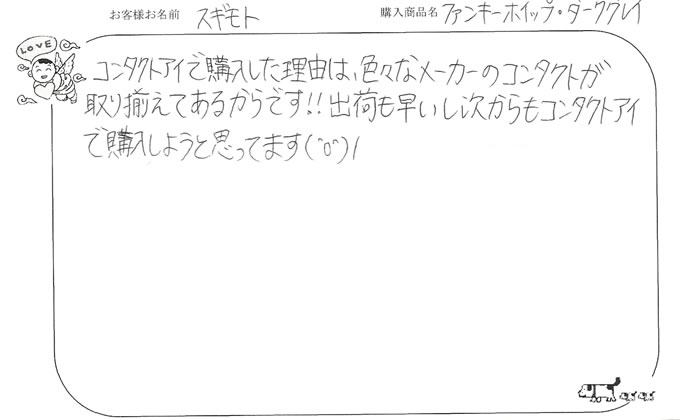 お客様お名前 スギモト 購入商品名 ファンキーホイップ・ダークグレイ
LOVE
コンタクトアイで購入した理由は、色々なメーカーのコンタクトが
取り揃えてあるからです!!出荷も早いし次からもコンタクトアイ
で購入しようと思ってます(^o^)/